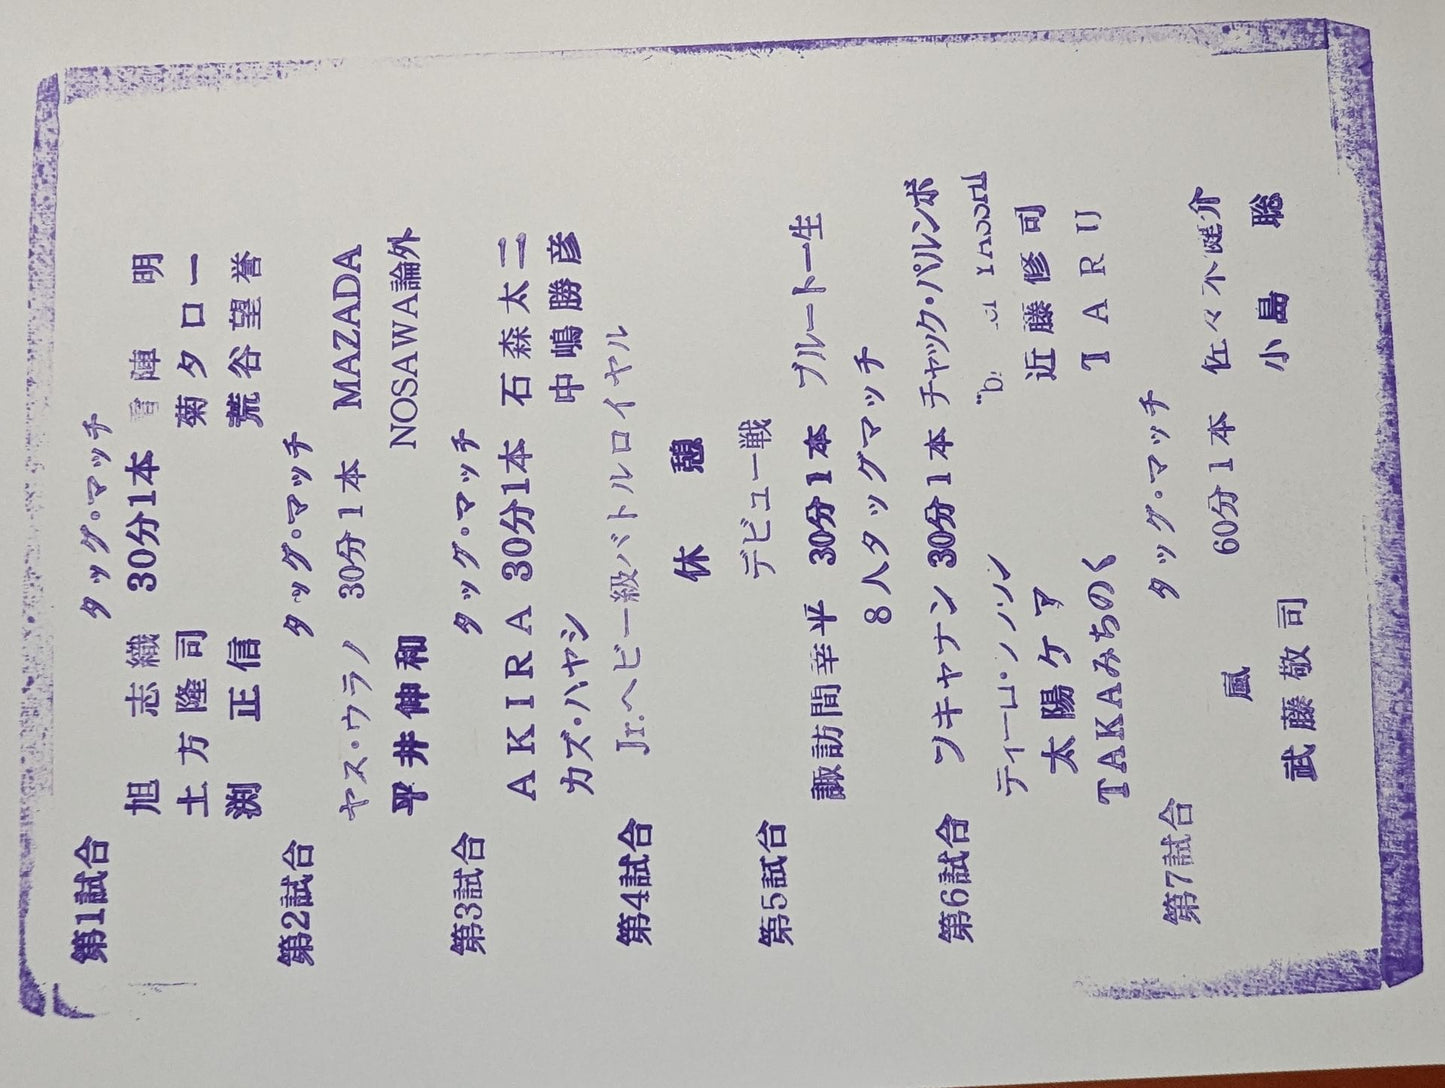 第1試合 タッグ・マッチ
旭 志織 30分1本 陣 明
土方隆司 菊タロー
渕 正信 荒谷望誉
第2試合 タッグ・マッチ
ヤス・ウラノ 30分1本 MAZADA
平井伸和 NOSAWA論外
第3試合 タッグ・マッチ
AKIRA 30分1本 石森太二
カズ・ハヤシ 中嶋勝彦
第4試合 Jr.ヘビー級バトルロイヤル
休憩
第5試合 デビュー戦
諏訪間幸平 30分1本 ブルート一生
8人タッグマッチ
第6試合 ツキャナン 30分1本 チャック・パルンボ
ディーロ・
太陽ケア 近藤修司
TAKAみちのく TARU
第7試合 タッグ・マッチ
嵐 60分1本 佐々木健介
武藤敬司 小島 聡